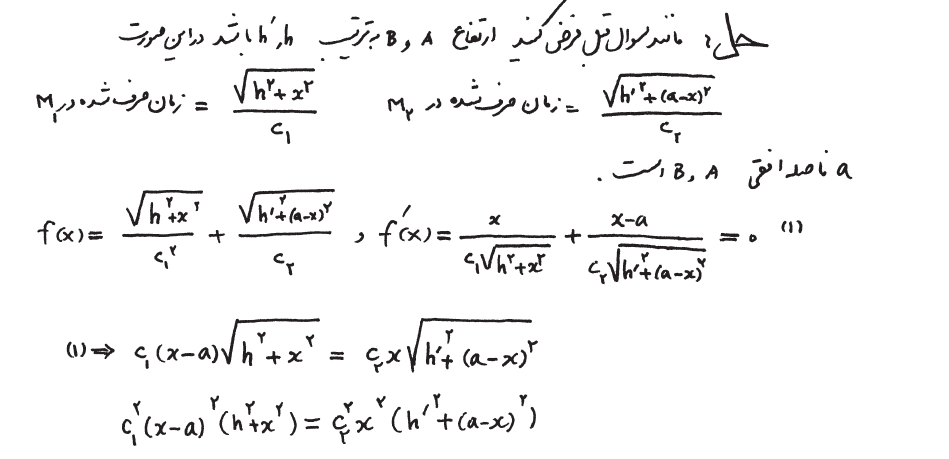 حل: مانند سوال قبل فرض کنید ارتفاع A و B به ترتیب h و h′ باشد در این صورت
زمان صرف شده در M₁ = √(h²+x²) / c₁    زمان صرف شده در M₂ = √(h′²+(a-x)²) / c₂
a فاصله افقی A و B است.
f(x) = √(h²+x²) / c₁² + √(h′²+(a-x)²) / c₂ , f′(x) = x / (c₁√(h²+x²)) + (x-a) / (c₂√(h′²+(a-x)²)) = ۰ (۱)
(۱) ⇒ c₁(x-a)√(h²+x²) = c₂x√(h′²+(a-x)²)
c₁²(x-a)²(h²+x²) = c₂²x²(h′²+(a-x)²)